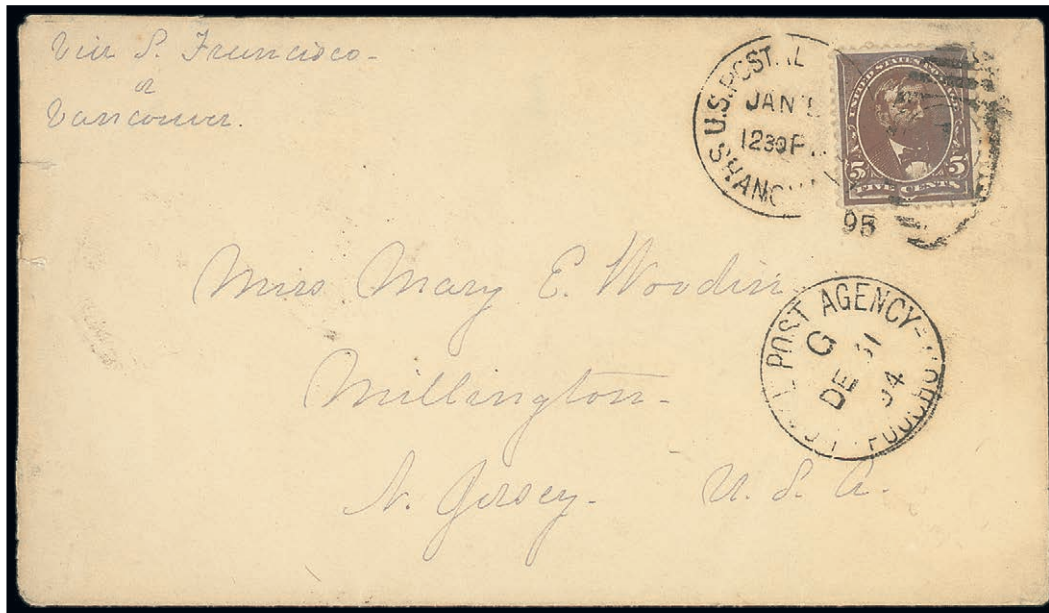 Via S. Francisco-
or
Vancouver.
U.S. POSTAL
JAN
1230P
SHANGHAI
95
UNITED STATES
5 5
FIVE CENTS
Miss Mary E. Woodin
Millington-
N. Jersey- U. S. A.
LOCAL POST AGENCY- FOOCHOW
G
DE 31
94